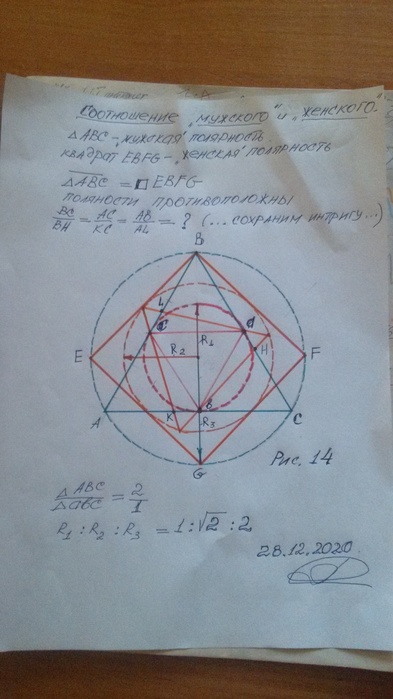 СООТНОШЕНИЕ „МУЖСКОГО" И „ЖЕНСКОГО".
△ABC – „МУЖСКАЯ" ПОЛЯРНОСТЬ
КВАДРАТ EBFG – „ЖЕНСКАЯ" ПОЛЯРНОСТЬ
△ABC = □ EBFG
ПОЛЯНОСТИ ПРОТИВОПОЛОЖНЫ
BC/BH = AC/KC = AB/AL = ? (... СОХРАНИМ ИНТРИГУ...)
B
L
C
a
E
R2
R1
H
F
A
K
B
R3
C
G
Рис. 14
△ABC/△abc = 2/1
R1 : R2 : R3 = 1 : √2 : 2
28.12.2020